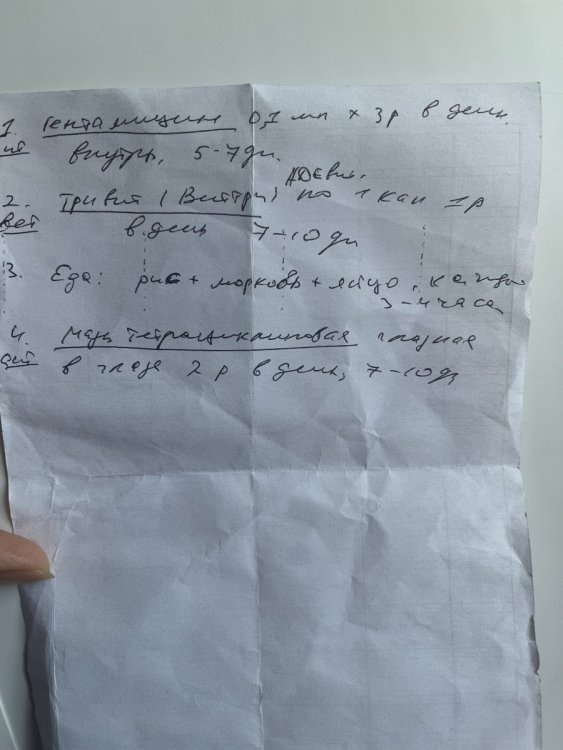 1. Гентамицин 0,1 мл х 3р в день.
внутрь, 5-7 дн.
2. Тривит (Виттри) по 1 кап 1р
вет в день 7-10 дн
3. Еда: рис + морковь + яйцо, каждые
3-4 часа
4. Мазь тетрациклиновая глазная
в глаза 2 р в день, 7-10 д